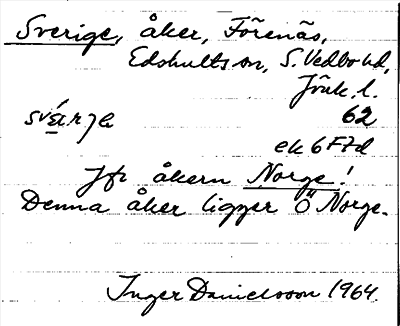 Sverige, åker, Förenäs,
Edshults sn, S. Vedbo hd,
Jönk. l.
svärje 62
ek 6 F7d
Jfr åkern Norge!
Denna åker ligger Ö Norge.
Inger Danielsson 1964.